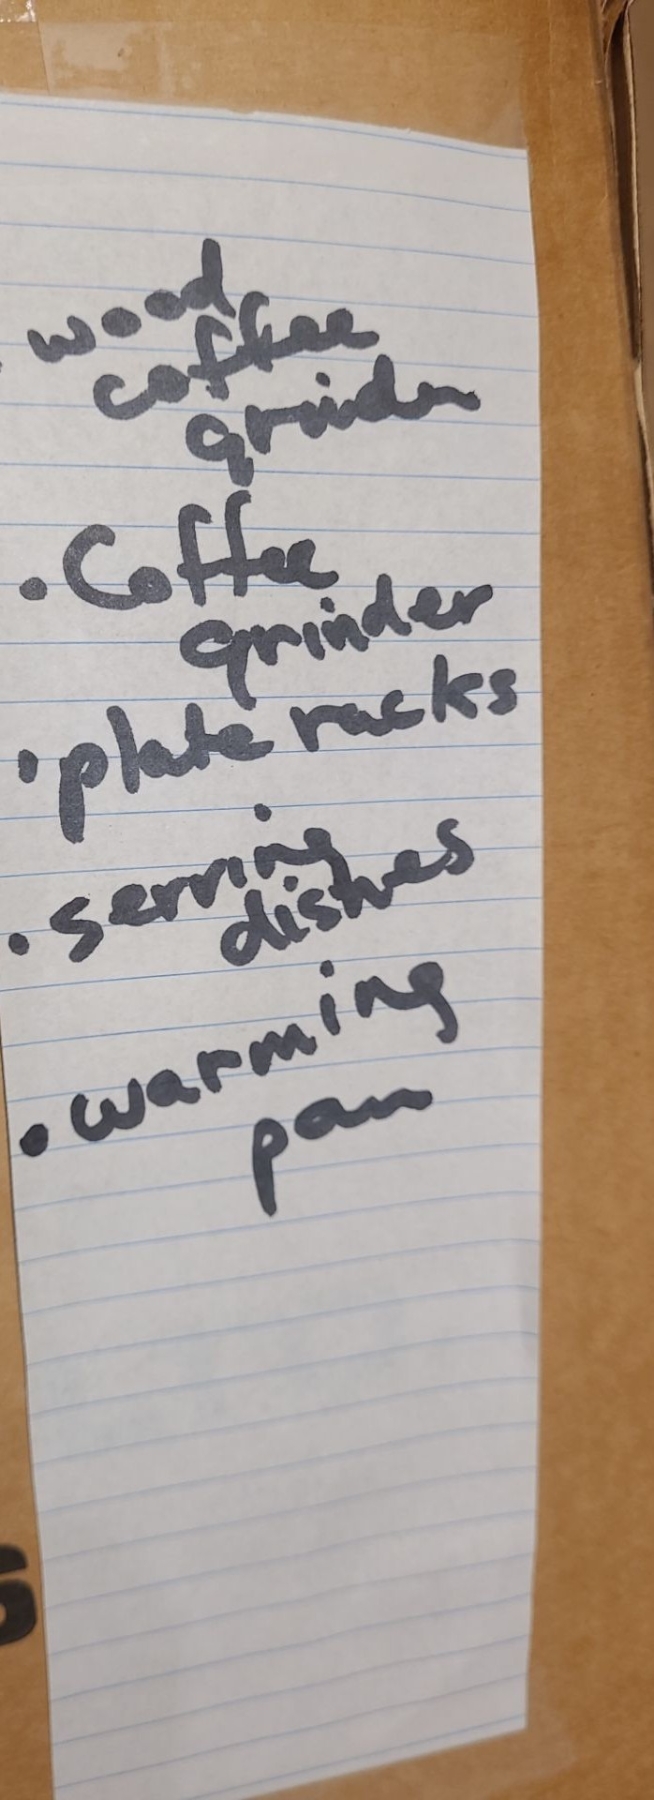 wood
coffee
grinder
• Coffee
grinder
• plate racks
• serving
dishes
• warming
pan